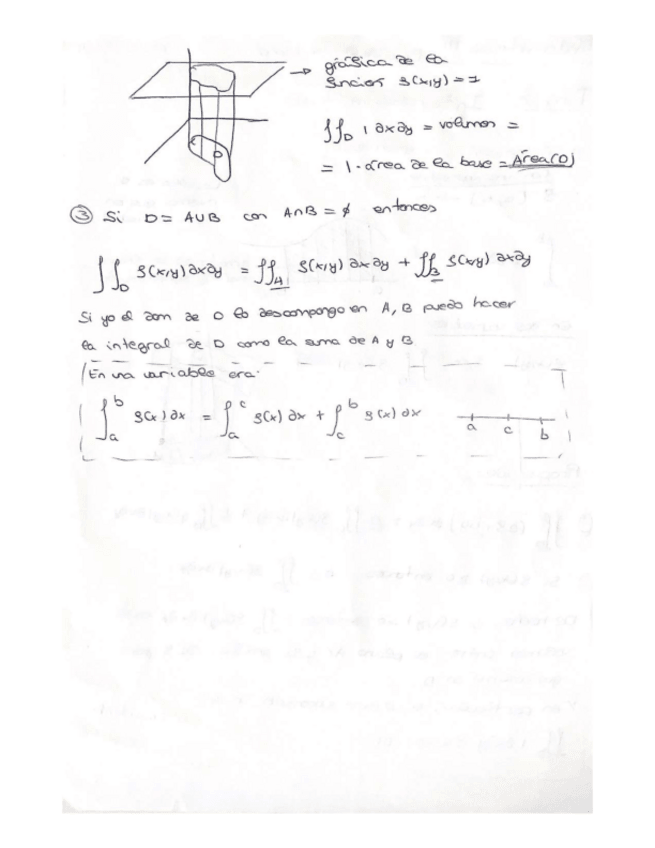 → gráfica de la
función f(x,y) = 1
∬_D 1 dxdy = volumen =
= 1·área de la base = Área(D)
D
③ Si D = A∪B con A∩B = ∅ entonces
∬_D f(x,y)dxdy = ∬_A f(x,y) dxdy + ∬_B f(x,y) dxdy
Si yo el dom de D lo descompongo en A, B puedo hacer
la integral de D como la suma de A y B
En una variable era:
∫_a^b f(x)dx = ∫_a^c f(x)dx + ∫_c^b f(x)dx
a c b